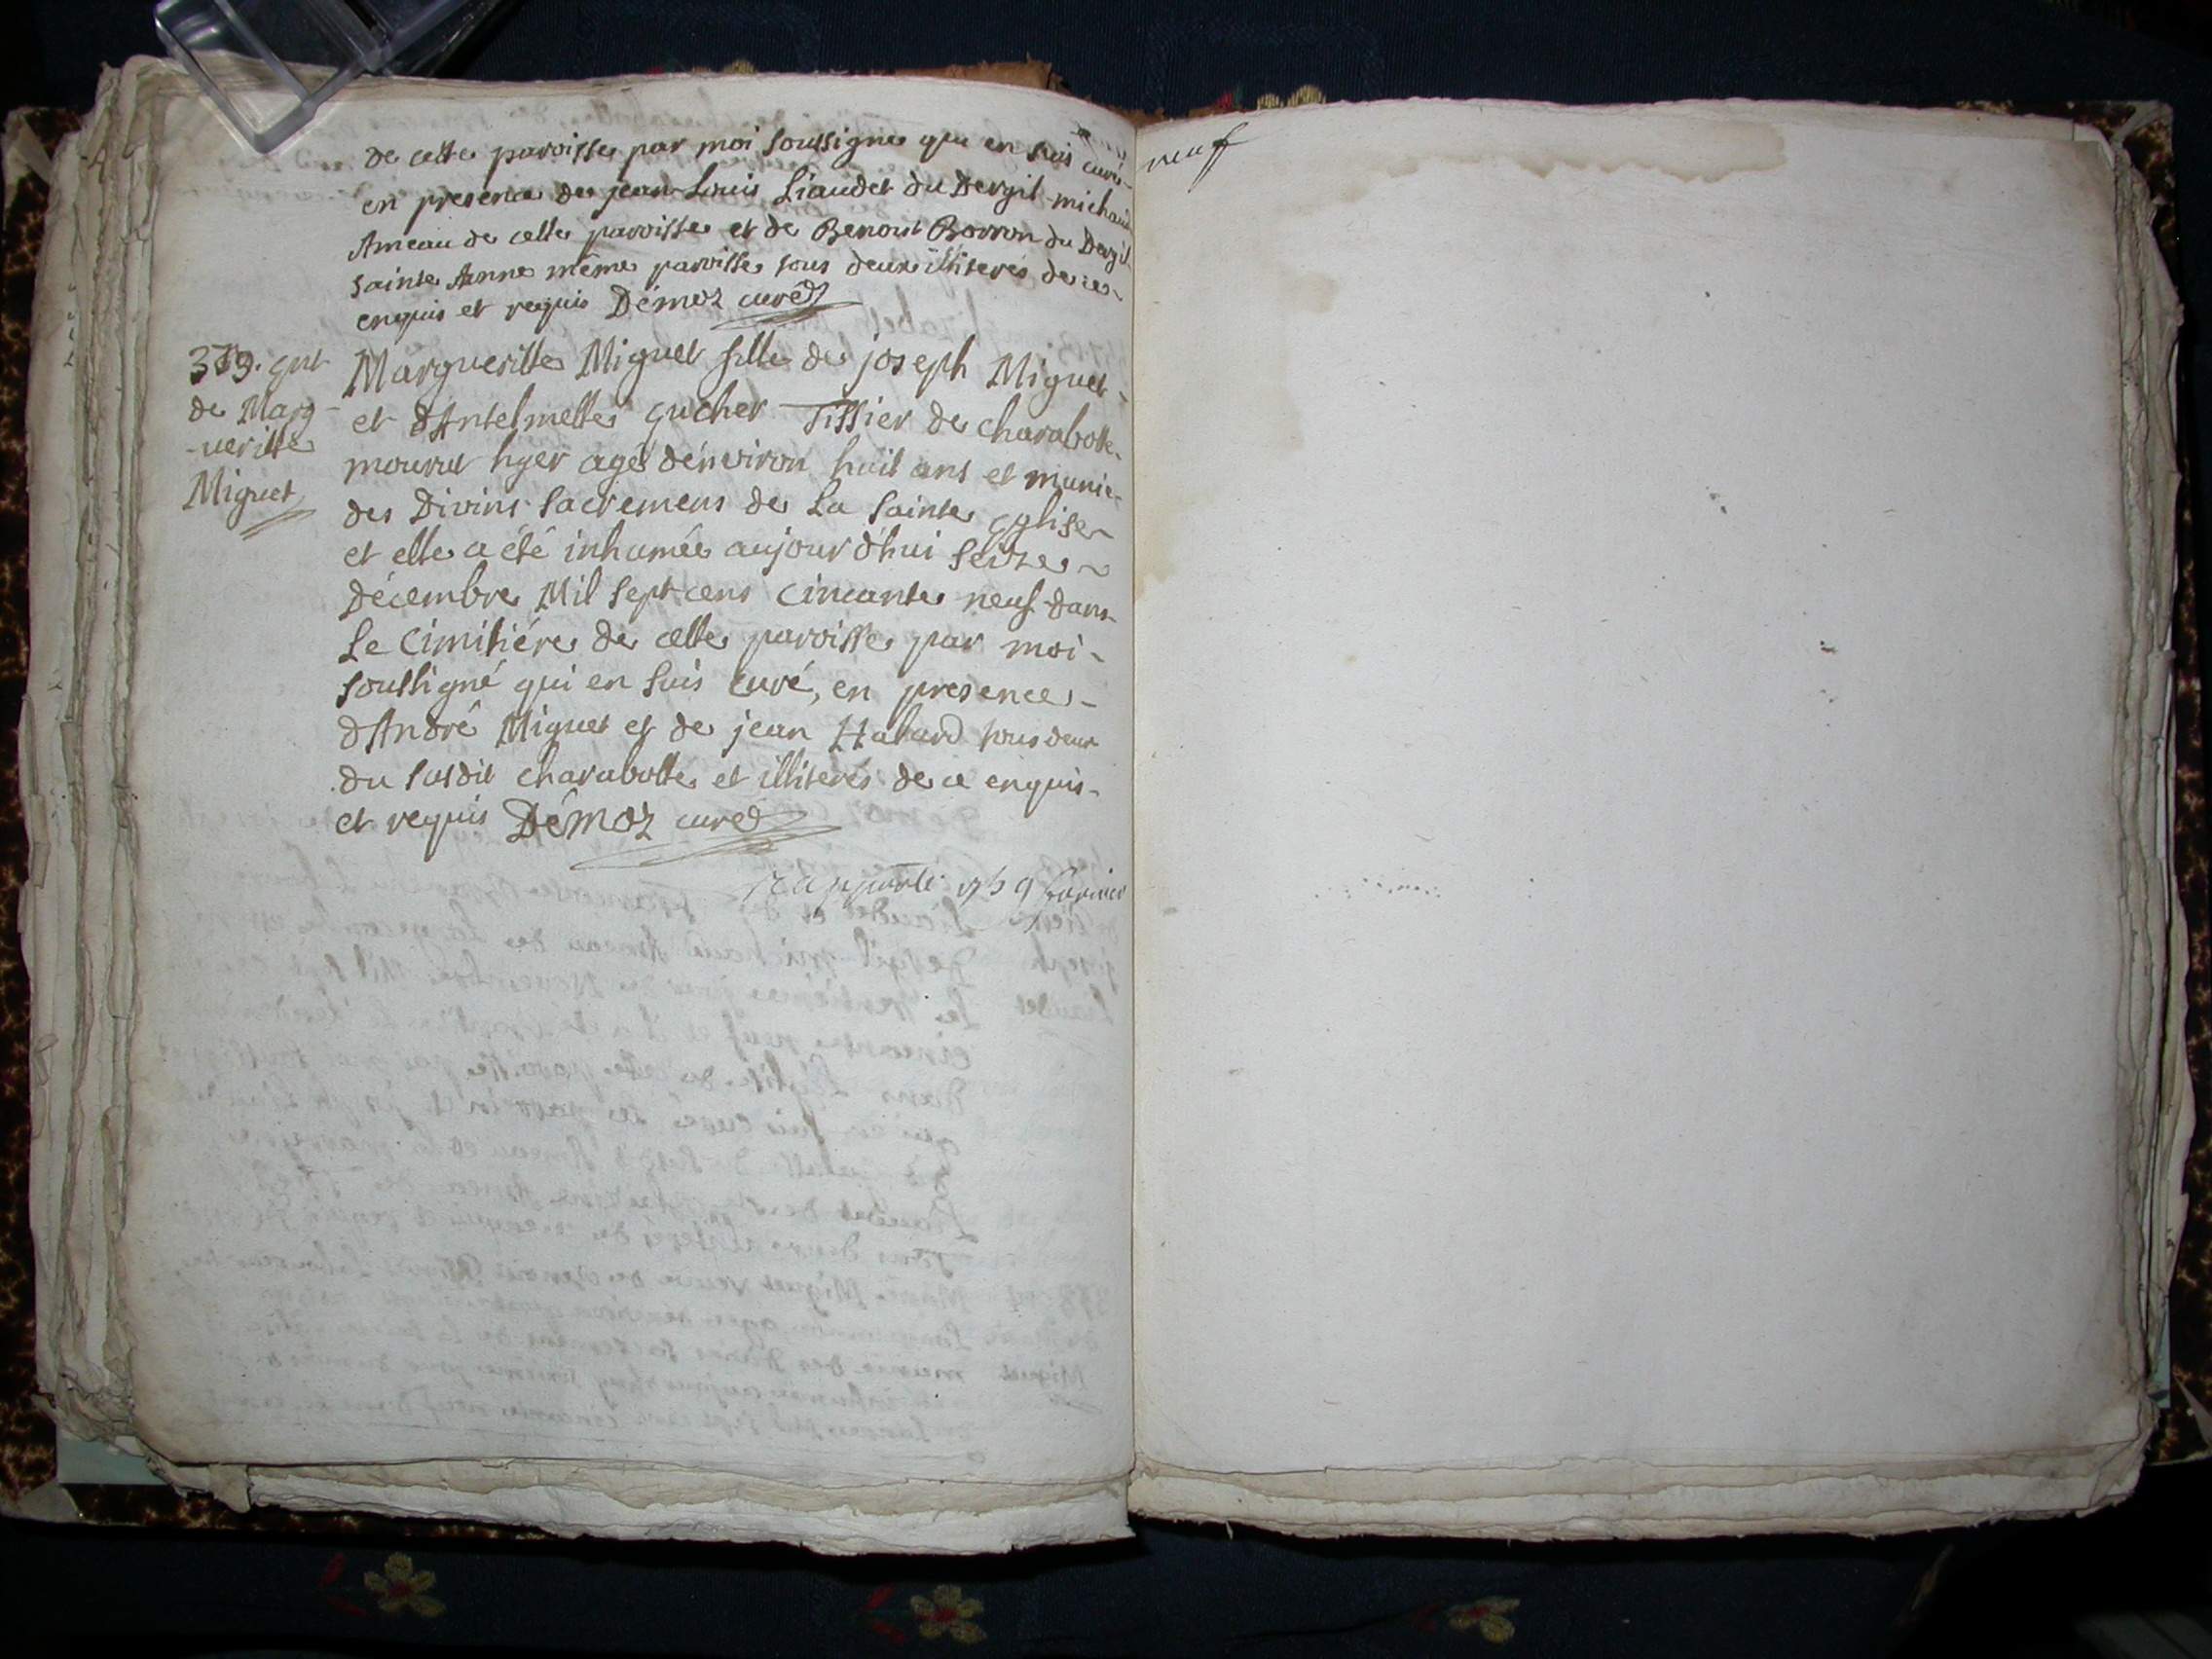 de cette paroisse par moi soussigné qui en suis curé
en presence de jean-Louis Liaudet du Dergil-michaud
Ameau de cette paroisse et de Benoit Borron du Dergil
sainte Anne même paroisse tous deux illiterés de ce
enquis et requis Démoz curé
379. 
de Marg
-ueritte
Miguet
Margueritte Miguet fille de joseph Miguet
et d'Antelmette Tissier de charabotte
mourut hyer agé d'énviron huit ans et munie
des Divins Sacremens de La Sainte Eglise
et elle a été inhumée aujourd'hui seize
Décembre Mil Sept cens Cincante neuf dans
Le Cimitiére de cette paroisse par moi
soussigné qui en suis curé, en presence
d'André Miguet et de jean tous deux
du susdit charabotte et illiterés de ce enquis
et requis Démoz curé
rapporté 1759
neuf